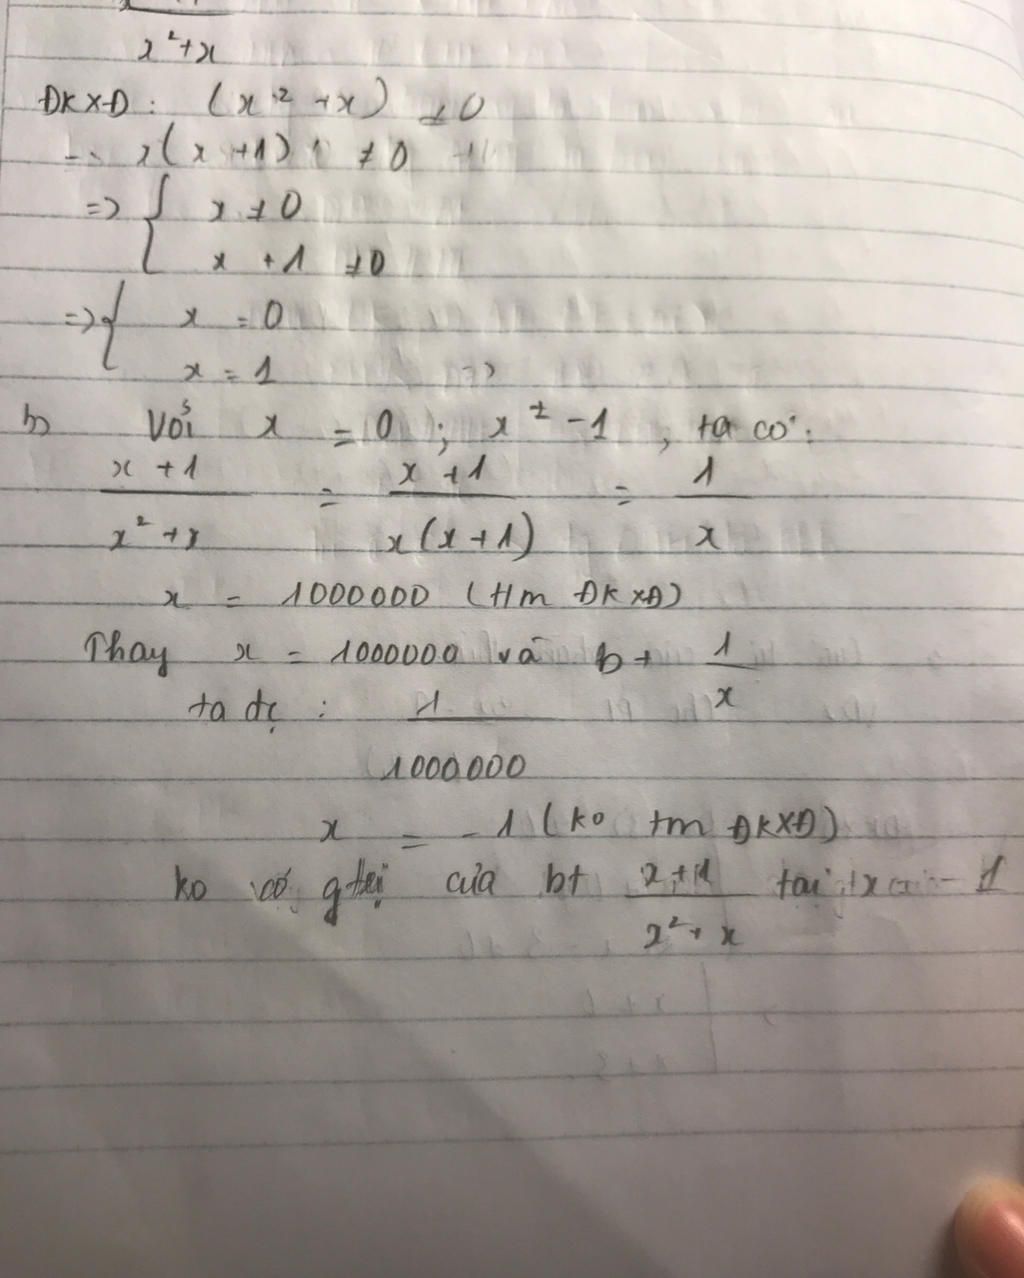 x²+x
ĐKXĐ: (x² +x) ≠0
x(x +1) ≠ 0
=> { x ≠ 0
x + 1 ≠0
=> { x = 0
x = 1 =>
b Với x = 0 ; x ≠ -1 , ta có:
x +1 / x² +x = x +1 / x(x+1) = 1 / x
x = 1000000 (tm ĐKXĐ)
Thay x = 1000000 và bt 1 / x
ta đc : 1 / 1000000
x = -1 (ko tm ĐKXĐ)
ko có gtrị của bt x+1 / x²+ x tại x = -1